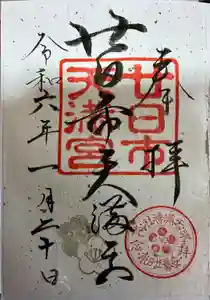 奉拝
廿日市天満宮
令和六年一月三十日
廿日市
天満宮